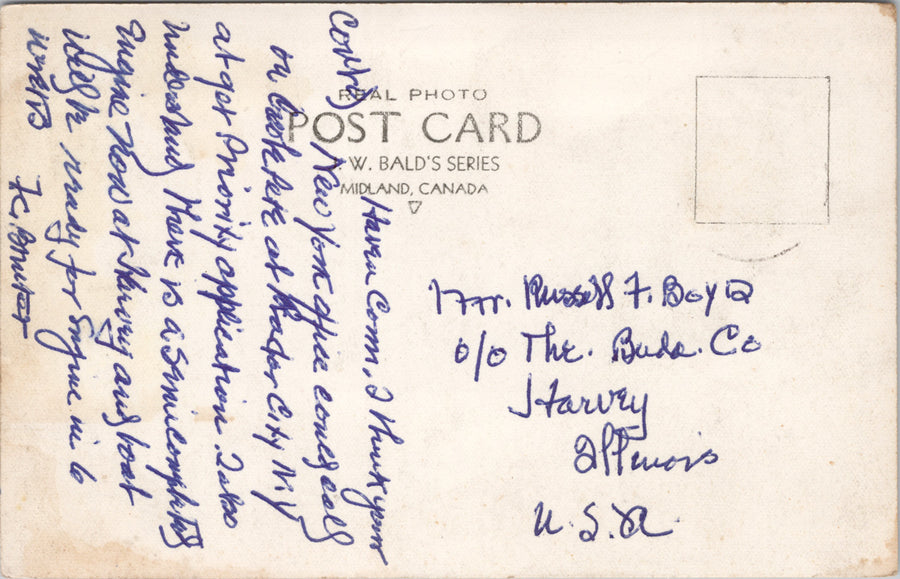 REAL PHOTO
POST CARD
W. BALD'S SERIES
MIDLAND, CANADA
Contd
Haven Conn, I think your
New York office could call
on at City NY
at get Priority application I also
understand there is a Semi completed
Engine now at Harvey and boat
will be ready for Engine in 6
weeks
Mr. Russell F. Boyd
c/o The. Buda. Co
Harvey
Illinois
U.S.A.